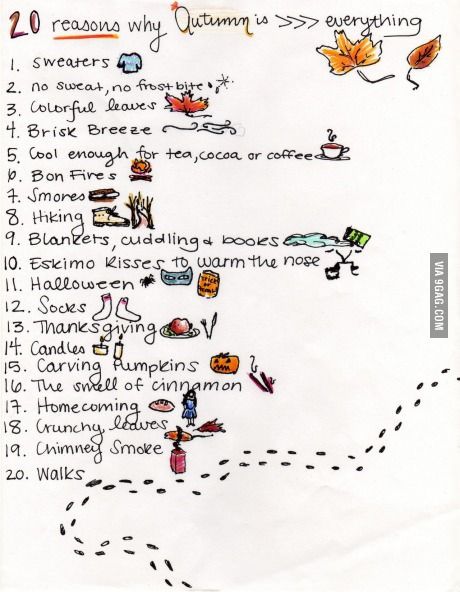 20 reasons why Autumn is >>> everything
1. Sweaters
2. no sweat, no frostbite
3. Colorful leaves
4. Brisk Breeze
5. Cool enough for tea, cocoa or coffee
6. Bon Fires
7. Smores
8. Hiking
9. Blankets, cuddling & books
10. Eskimo Kisses to warm the nose
11. Halloween
TRICK or treat!
12. Socks
13. Thanksgiving
14. Candles
15. Carving Pumpkins
16. The smell of cinnamon
17. Homecoming
18. Crunchy leaves
19. Chimney Smoke
20. Walks
VIA 9GAG.COM